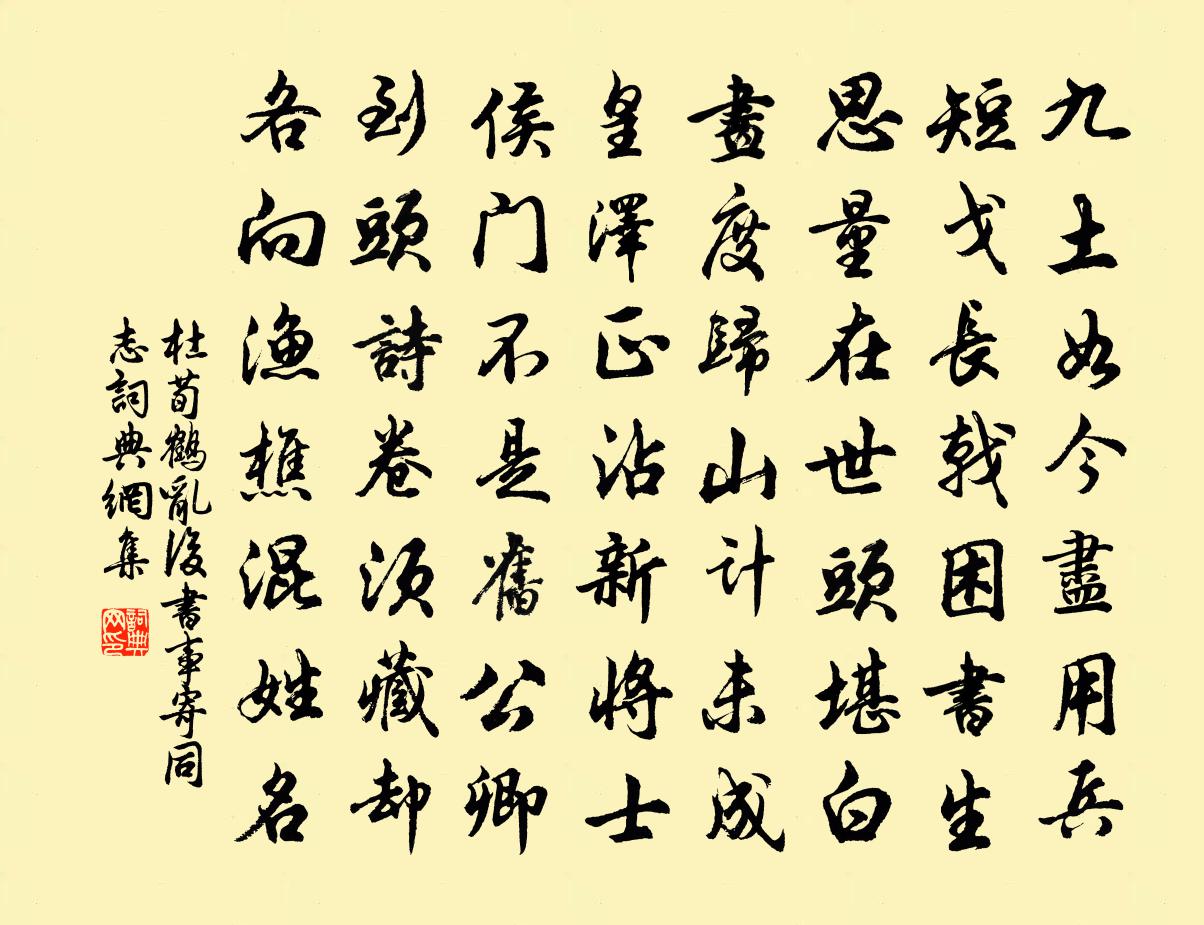 九土如今盡用兵
短戈長戟困書生
思量在世頭堪白
畫度歸山計未成
皇澤正沾新將士
侯門不是舊公卿
到頭詩卷須藏却
各向漁樵混姓名
杜荀鶴亂後書事寄同
志詞典網集
詞典
网印